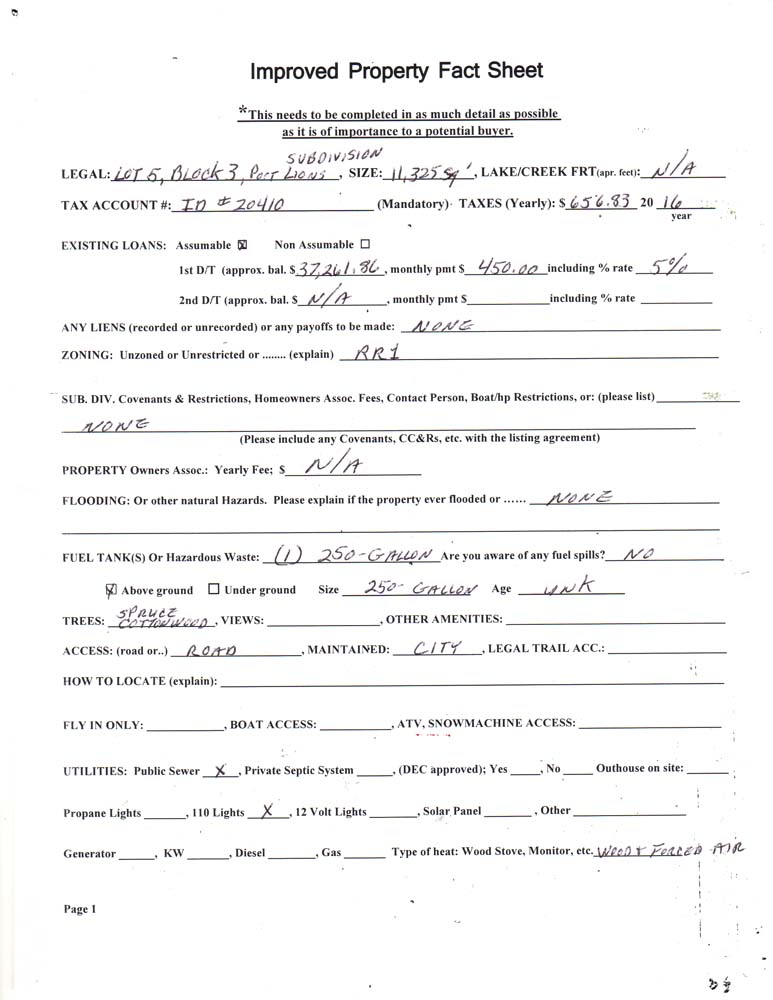 Improved Property Fact Sheet
*This needs to be completed in as much detail as possible
as it is of importance to a potential buyer.
SUBDIVISION
LEGAL: LOT 5, BLOCK 3, PORT LIONS, SIZE: 11,325 sq', LAKE/CREEK FRT(apr. feet): N/A
TAX ACCOUNT #: ID # 20410 (Mandatory) TAXES (Yearly): $ 656.83 20 16
year
EXISTING LOANS: Assumable ☒ Non Assumable ☐
1st D/T (approx. bal. $ 37,261.86, monthly pmt $ 450.00 including % rate 5%
2nd D/T (approx. bal. $ N/A, monthly pmt $ including % rate
ANY LIENS (recorded or unrecorded) or any payoffs to be made: NONE
ZONING: Unzoned or Unrestricted or ........ (explain) RR1
SUB. DIV. Covenants & Restrictions, Homeowners Assoc. Fees, Contact Person, Boat/hp Restrictions, or: (please list)
NONE
(Please include any Covenants, CC&Rs, etc. with the listing agreement)
PROPERTY Owners Assoc.: Yearly Fee; $ N/A
FLOODING: Or other natural Hazards. Please explain if the property ever flooded or ...... NONE
FUEL TANK(S) Or Hazardous Waste: (1) 250-GALLON Are you aware of any fuel spills? NO
☒ Above ground ☐ Under ground Size 250-GALLON Age UNK
SPRUCE
TREES: COTTONWOOD, VIEWS: , OTHER AMENITIES:
ACCESS: (road or..) ROAD, MAINTAINED: CITY, LEGAL TRAIL ACC.:
HOW TO LOCATE (explain):
FLY IN ONLY: , BOAT ACCESS: , ATV, SNOWMACHINE ACCESS:
UTILITIES: Public Sewer X, Private Septic System , (DEC approved); Yes , No Outhouse on site:
Propane Lights , 110 Lights X, 12 Volt Lights , Solar Panel , Other
Generator , KW , Diesel , Gas Type of heat: Wood Stove, Monitor, etc. WOOD & FORCED AIR
Page 1